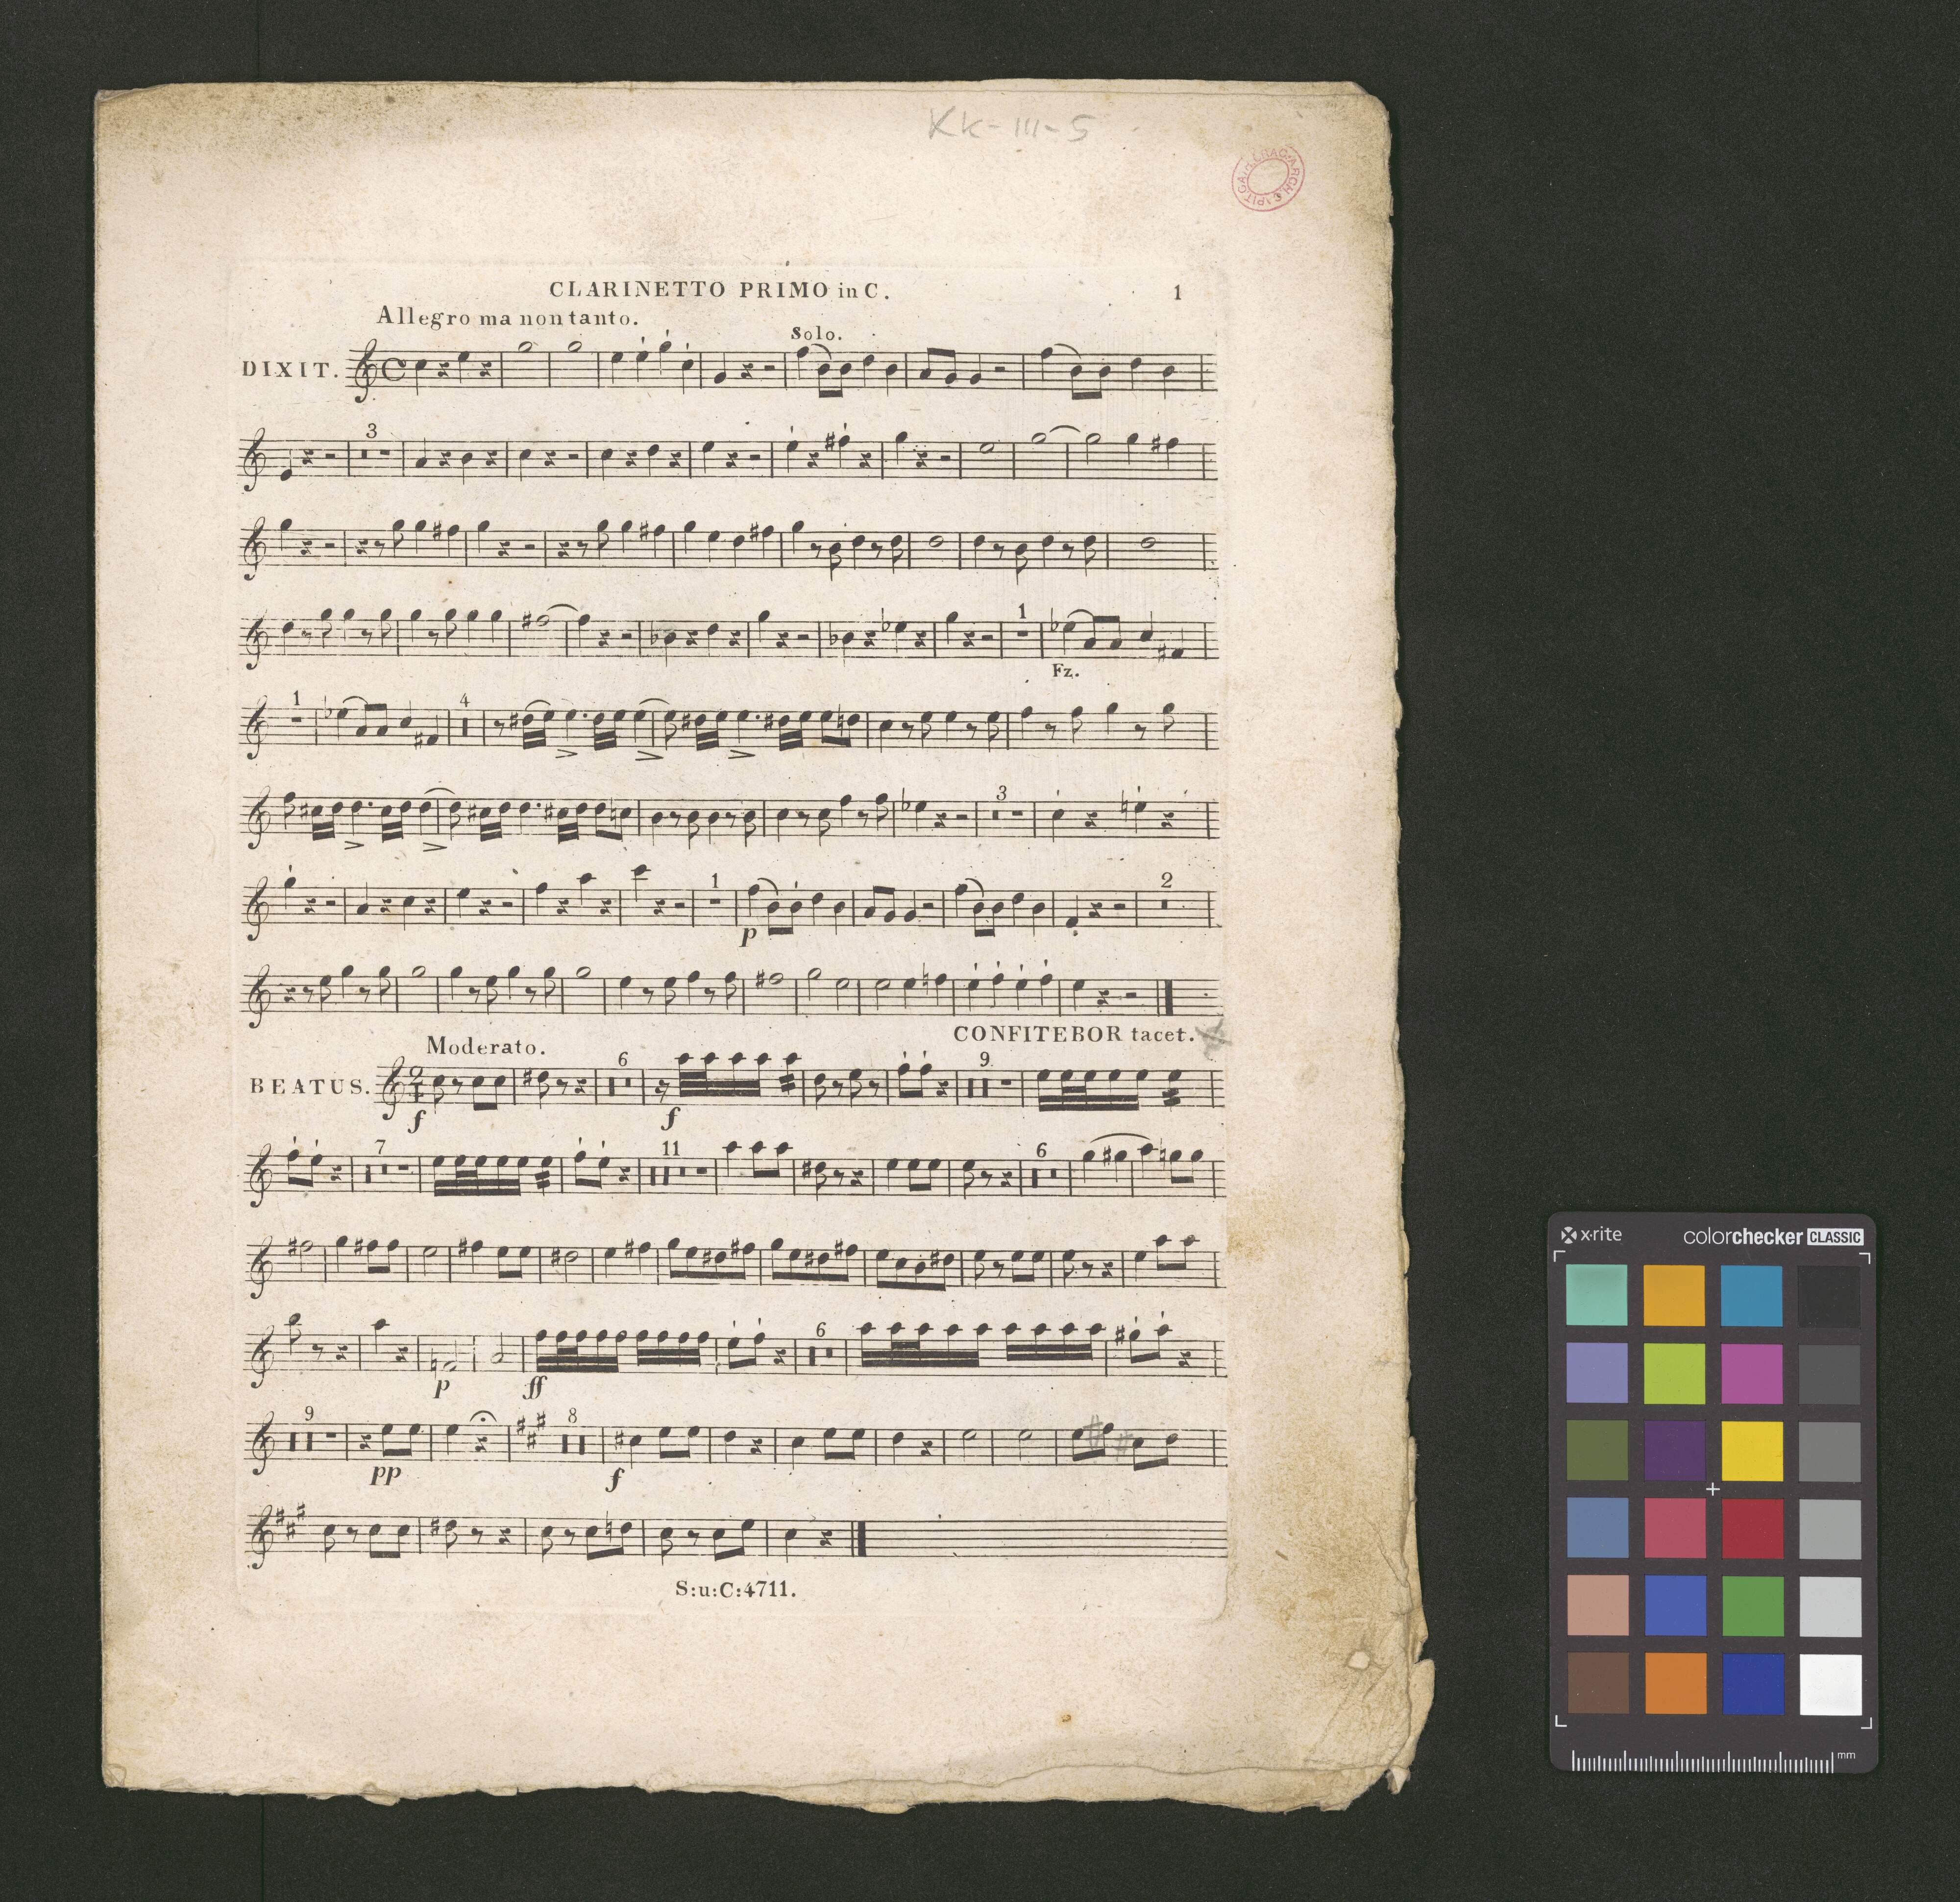 Kk-III-5
CLARINETTO PRIMO in C.
1
Allegro ma non tanto.
Solo.
DIXIT.
3
1
Fz.
1
4
3
1
2
p
CONFITEBOR tacet.
Moderato.
BEATUS.
2
4
6
9
f
f
7
11
6
6
p
ff
9
8
pp
f
S:u:C:4711.
x·rite
colorchecker CLASSIC
mm